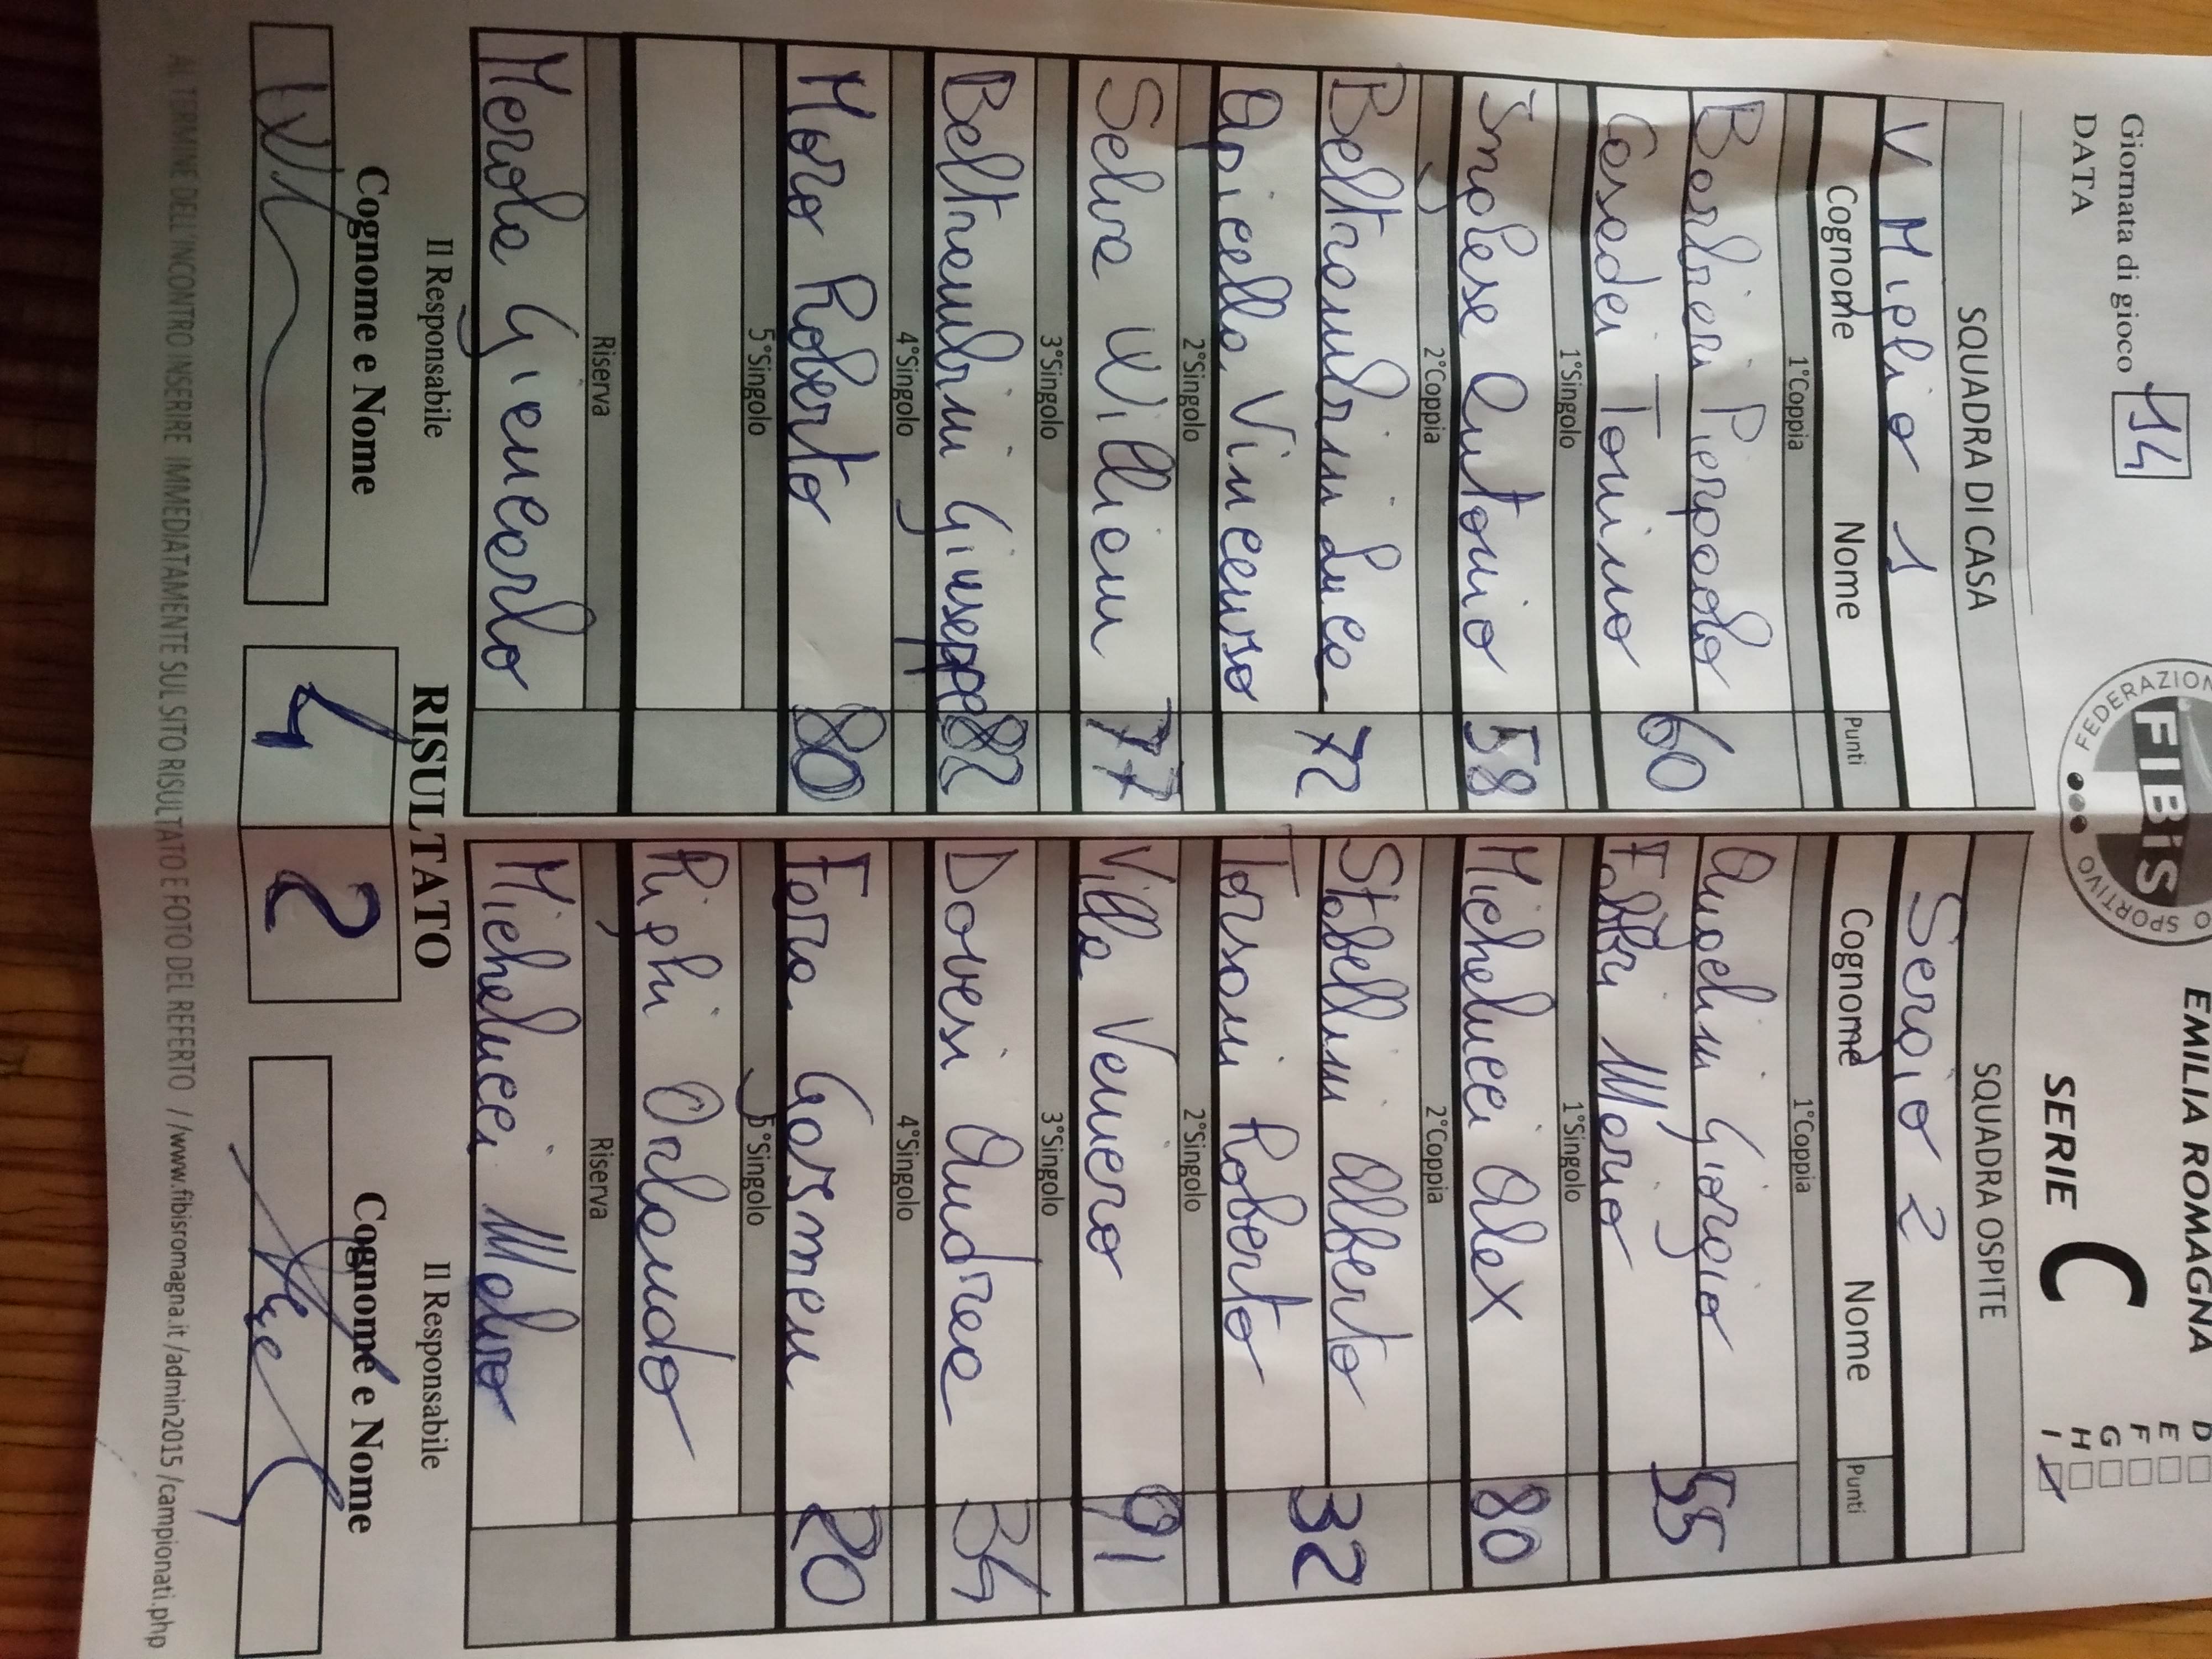 EMILIA ROMAGNA
FEDERAZION
FIBiS
O SPORTIVO
SERIE C
D
E
F
G
H
I
Giornata di gioco 14
DATA
SQUADRA DI CASA SQUADRA OSPITE
V Miglio 1 Sergio 2
Cognome Nome Punti Cognome Nome Punti
1°Coppia 1°Coppia
Barbieri Pierpaolo Angelini Giorgio
60 55
Casadei Tonino Fabbri Mario
1°Singolo 1°Singolo
Imolese Antonio 58 Michelucci Alex 80
2°Coppia 2°Coppia
Beltrambini Luca Stabellini Alberto
72 32
Apicella Vincenzo Tarsoni Roberto
2°Singolo 2°Singolo
Selva William 77 Villa Veniero 91
3°Singolo 3°Singolo
Beltrambini Giuseppe 82 Dovesi Andrea 34
4°Singolo 4°Singolo
Moro Roberto 80 Fara Gasmen 20
5°Singolo 5°Singolo
Righi Orlando
Riserva Riserva
Merola Giancarlo Michelucci Melio
Il Responsabile RISULTATO Il Responsabile
Cognome e Nome 4 2 Cognome e Nome
AL TERMINE DELL'INCONTRO INSERIRE IMMEDIATAMENTE SUL SITO RISULTATO E FOTO DEL REFERTO //www.fibisromagna.it /admin2015 /campionati.php